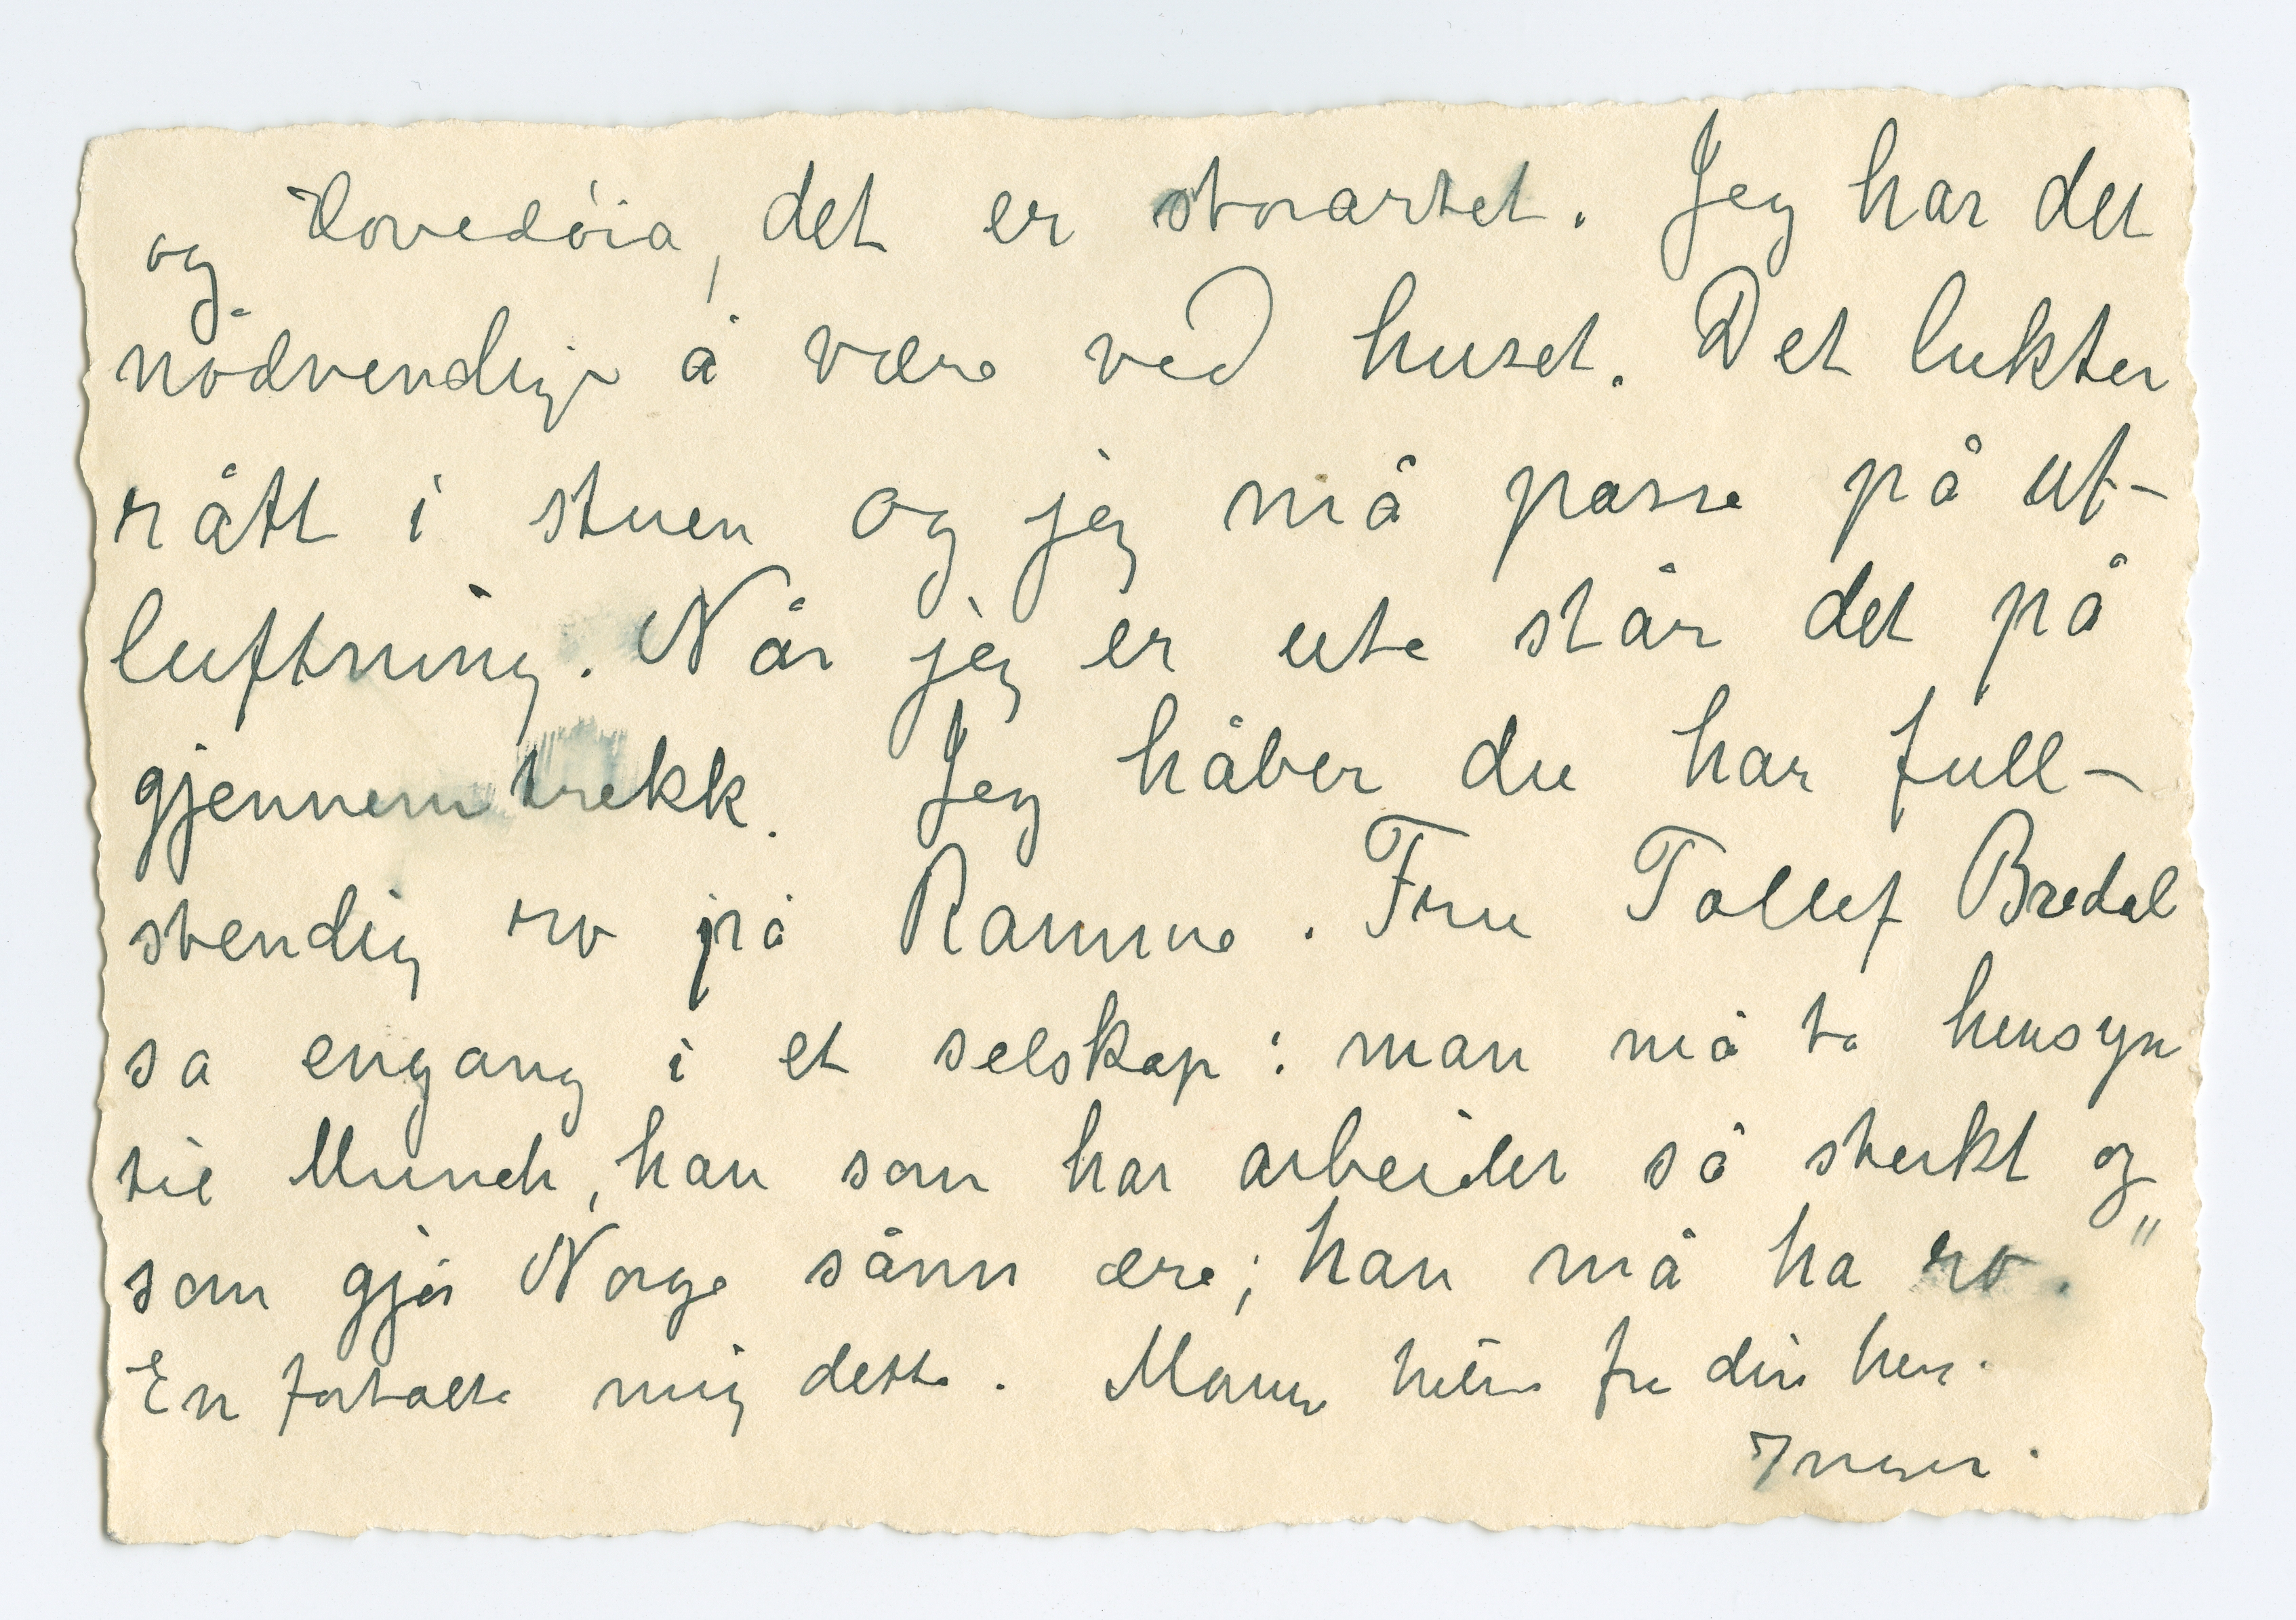 og Hovedøia, det er storartet. Jeg har det
nødvendig å være ved huset. Det lukter
rått i stuen og jeg må passe på ut-
luftning. Når jeg er ute står det på
gjennemtrekk. Jeg håber du har full-
stendig ro på Ramme. Fru Tollef Bredal
sa engang i et selskap: man må ta hensyn
til Munch, han som har arbeidet så sterkt og
som gjør Norge sånn ære; han må ha ro."
En fortalte mig dette. Mange hilsen fra din heng.
Inger.